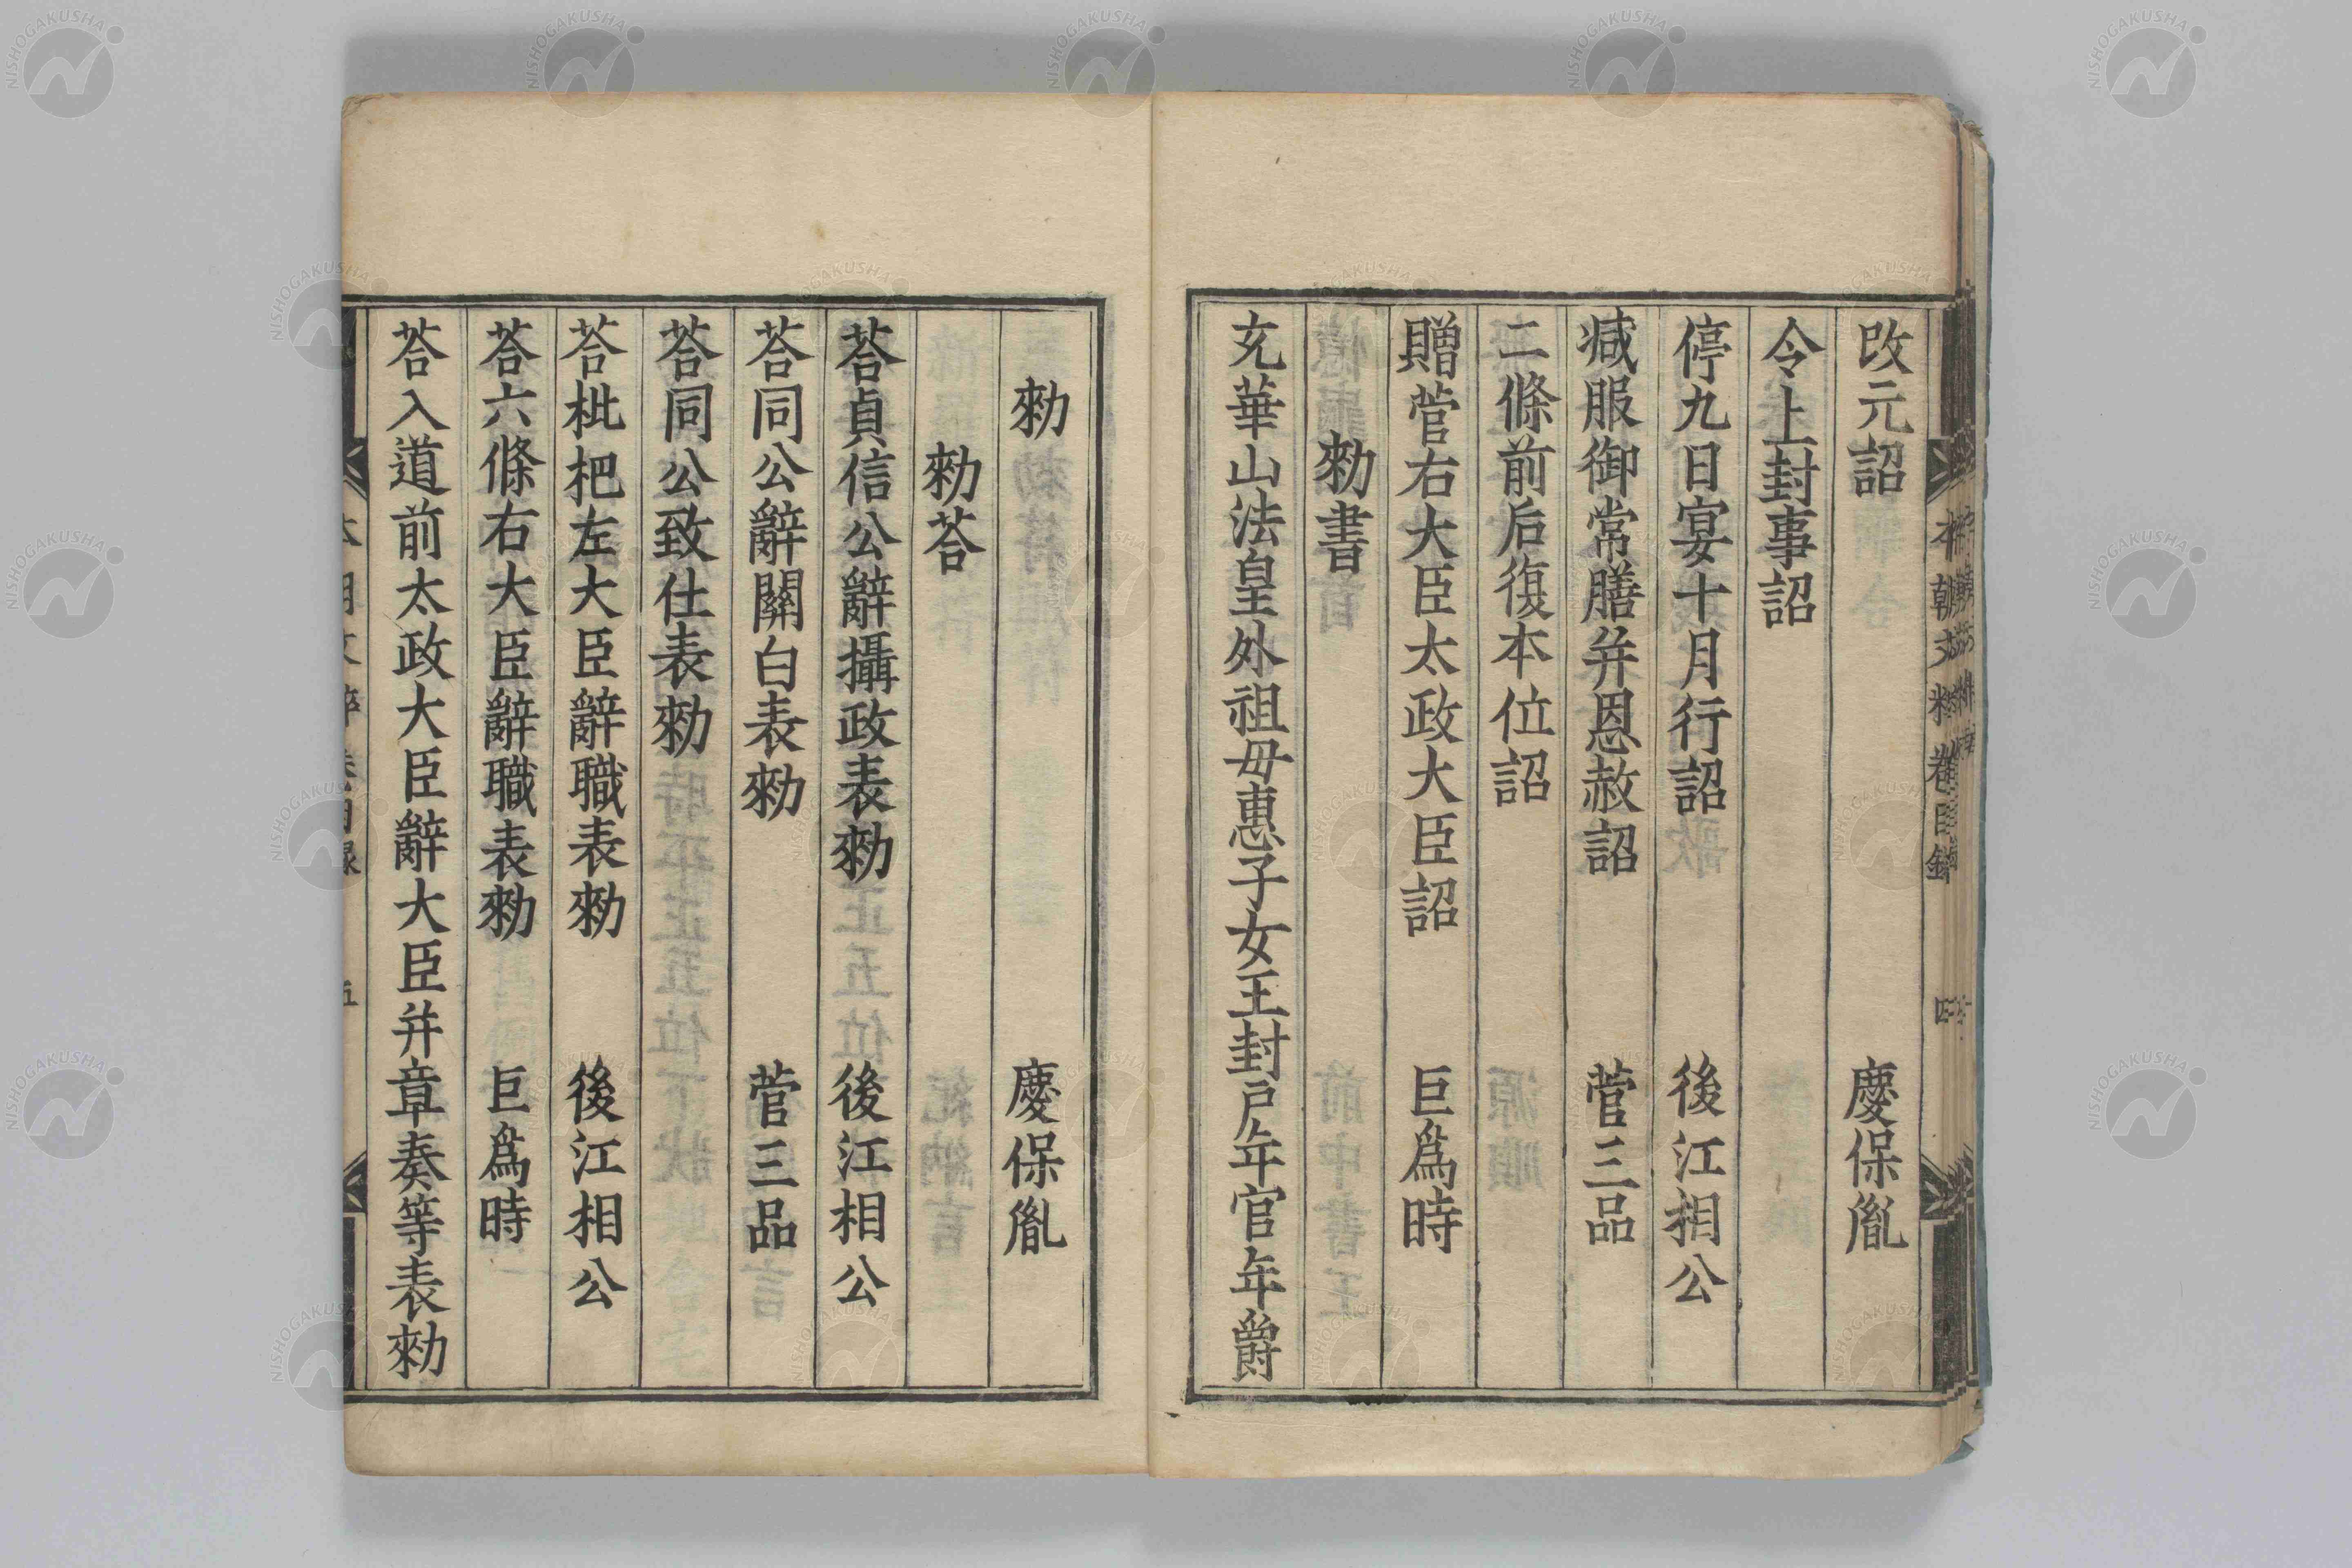 改元詔 慶保胤
令上封事詔
停九日宴十月行詔 後江相公
减服御常膳并恩赦詔 菅三品
二條前后復本位詔
贈菅右大臣太政大臣詔 巨爲時
勑書
充華山法皇外祖母惠子女王封戸年官年爵
勑 慶保胤
勑荅
荅貞信公辭攝政表勑 後江相公
荅同公辭關白表勑 菅三品
荅同公致仕表勑
荅枇杷左大臣辭職表勑 後江相公
荅六條右大臣辭職表勑 巨爲時
荅入道前太政大臣辭大臣并章奏等表勑
本朝文粹卷目錄 四
五
NISHOGAKUSHA